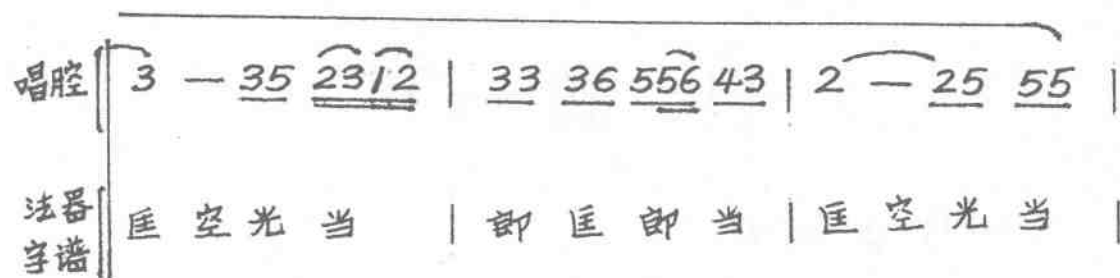 唱腔 3 — 35 2312 | 33 36 556 43 | 2 — 25 55 |
法器字谱 匡 空 光 当 | 郎 匡 郎 当 | 匡 空 光 当 |